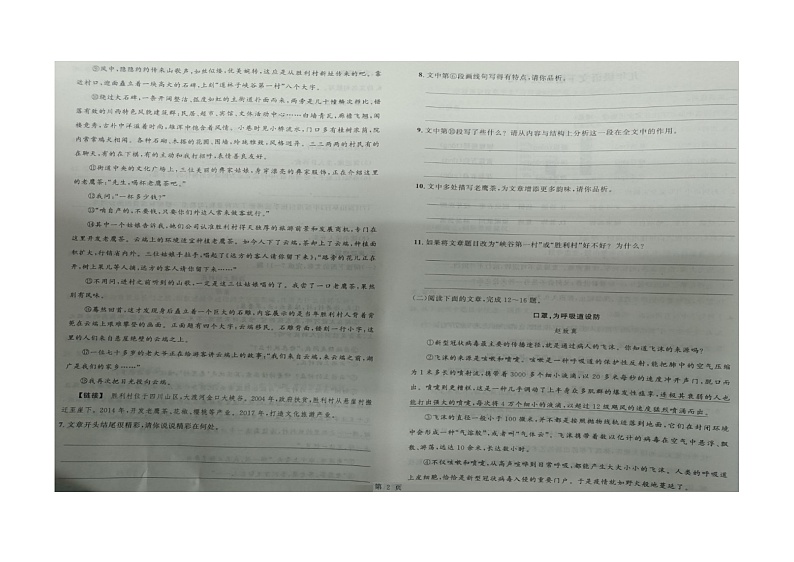 ⑨风中,隐隐约约传来山歌声,如云似烟,优美婉转,这应是从胜利村新址传来的吧。靠
近村口,迎面矗立着一块高大的石碑,上刻“道林子峡谷第一村”八个大字。
⑩绕过大石碑,一条开阔整洁、
错落有致的川西特色风貌建筑群;民居、超市、茶馆、文体活动中心……白墙青瓦,廊楼飞翘,阁
楼竞秀,古朴中洋溢着时尚,雄浑中倜含着风情。小巷时见小桥流水,门口多有桂树茶荫,院
内常常嫣天相合。各种石砌、木搭的花园、围墙,玲珑雅致,风格迥异。三三两两的村民有的
在聊天,有的在下棋,有的主动和我打招呼,表情善良友好。
⑪街道中央的文化广场上,三位美丽的彝家姑娘,身穿漂亮的彝家服饰,正在介绍这里
的老鹰茶:“先生,喝杯老鹰茶吧。”
⑫我问,“一杯多少钱?”
⑬“咱自产的,不要钱,只要你们外边人常来做客就行。”
⑭其中一个姑娘告诉我,她们公司认准胜利村得天独厚的旅游前景和发展商机,专门在
这里开发老鹰茶。云端上的环境适宜种植老鹰茶。如今人下了云端,茶却上了云端,种植面
积扩大,行销省内外。三位姑娘手拉手,唱起了《远方的客人请你留下来》,“路旁的花儿正在
开,树上果儿等人摘,远方的客人请你留下来……”
⑮不用问,进村之前听到的山歌,一定是这三位姑娘唱的了。我尝了一口老鹰茶,果然
别有风味。
⑯蓦然回首,这才发现身后矗立着一个巨大的石雕,内容反映的是胜利村人背着背
篼在云端上艰难攀登的画面,四个大字:云端移民。石雕背面,镌刻一行小字,这
里的人们来自悬崖绝壁之云端之上。
⑰一位七十多岁的老大爷正在给游客讲云端上的故事,“我们来自云端,来自云端之前,湖
广是我们的家乡……”
⑱我再次把目光投向云端。
【链接】 胜利村位于四川山区,大渡河金口大峡谷。2004年,政府扶贫,胜利村从悬崖村搬
迁至崖下。2014年,开发老鹰茶、花椒、樱桃等产业。2017年,打造文化旅游产业。
7. 文章开头结尾很精彩,请你说说精彩在何处。
8. 文中第⑥段画线句写得有特点,请你品析。
9. 文中第⑩段写了些什么?请从内容与结构上分析这一段在全文中的作用。
10. 文中多处描写老鹰茶,为文章增添更多韵味,请你品析。
11. 如果将文章题目改为“峡谷第一村”或“胜利村”好不好?为什么?
(二)阅读下面的文章,完成12～16题。
口罩,为呼吸道设防
①新型冠状病毒最主要的传播途径,就是通过病人飞沫。你知道飞沫的来源吗?
②飞沫的来源是咳嗽和喷嚏。咳嗽是一种呼吸道的保护性反射,能把肺中的空气压缩
为1米多长的喷射流,携带着3000多个细小液滴,以20多米每秒的速度冲开声门,脱口而
出。喷嚏则更糟糕,这是一种几乎调动了上半身在多肌群的爆发性痉挛,连极其衰弱的人也
能打出强大的喷嚏,以每次4万多个细小的液滴,以超过12级飓风的速度猛烈喷涌而出。
③飞沫的直径一般小于100微米,并不都是按照抛物线轨迹落到地面,它们在封闭的环
境中会形成一种“气溶胶”,或者叫“气体云”。飞沫携带着数以亿计的病毒在空气中悬浮、飘
散、游远,达10余米,长达数小时。
④不仅咳嗽和喷嚏,从高声咳嗽到日常呼吸,都能产生大大小小的飞沫。人类的呼吸道
上皮细胞,恰恰是新型冠状病毒入侵的重要门户。于是疫情犹如野火般地蔓延了。
第 2 页